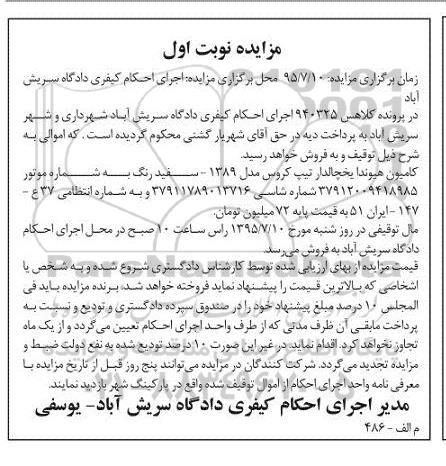 مزایده نوبت اول
زمان برگزاری مزایده: ۹۵/۷/۱۰ محل برگزاری مزایده:اجرای احکام کیفری دادگاه سریش
آباد
در پرونده کلاهس ۹۴۰۳۲۵ اجرای احکام کیفری دادگاه سریش آباد شهرداری و شهر
سریش آباد به پرداخت دیه در حق آقای شهریار گشنی محکوم گردیده است . که اموالی به
شرح ذیل توقیف و به فروش خواهد رسید.
کامیون هیوندا یخچالدار تیپ کروس مدل ۱۳۸۹ - سفید رنگ به شماره موتور
۳۷۹۱۲۰۰۹۴۱۸۹۸۵ شماره شاسی ۳۷۹۱۱۷۸۹۰۱۳۷۱۶ و به شماره انتظامی ۳۷ ع -
۱۴۷ - ایران ۵۱ به قیمت پایه ۷۲ میلیون تومان.
مال توقیفی در روز شنبه مورخ ۱۳۹۵/۷/۱۰ راس ساعت ۱۰ صبح در محل اجرای احکام
دادگاه سریش آباد به فروش می‌رسد.
قیمت مزایده از بهای ارزیابی شده توسط کارشناس دادگستری شروع شده و به شخص یا
اشخاصی که بالاترین قیمت را پیشنهاد نماید فروخته خواهد شد. برنده مزایده باید فی
المجلس ۱۰ درصد مبلغ پیشنهاد خود را در صندوق سپرده دادگستری و تودیع و نسبت به
پرداخت مابقی آن ظرف مدتی که از طرف واحد اجرای احکام تعیین می‌گردد و از یک ماه
تجاوز نخواهد کرد. اقدام نماید. در غیر این صورت ۱۰ درصد تودیع شده به نفع دولت ضبط و
مزایده تجدید می‌گردد. شرکت کنندگان در مزایده می‌توانند پنج روز قبل از تاریخ مزایده با
معرفی نامه واحد اجرای احکام از اموال توقیف شده واقع در پارکینگ شهر بازدید نمایند.
مدیر اجرای احکام کیفری دادگاه سریش آباد- یوسفی
م الف - ۴۸۶